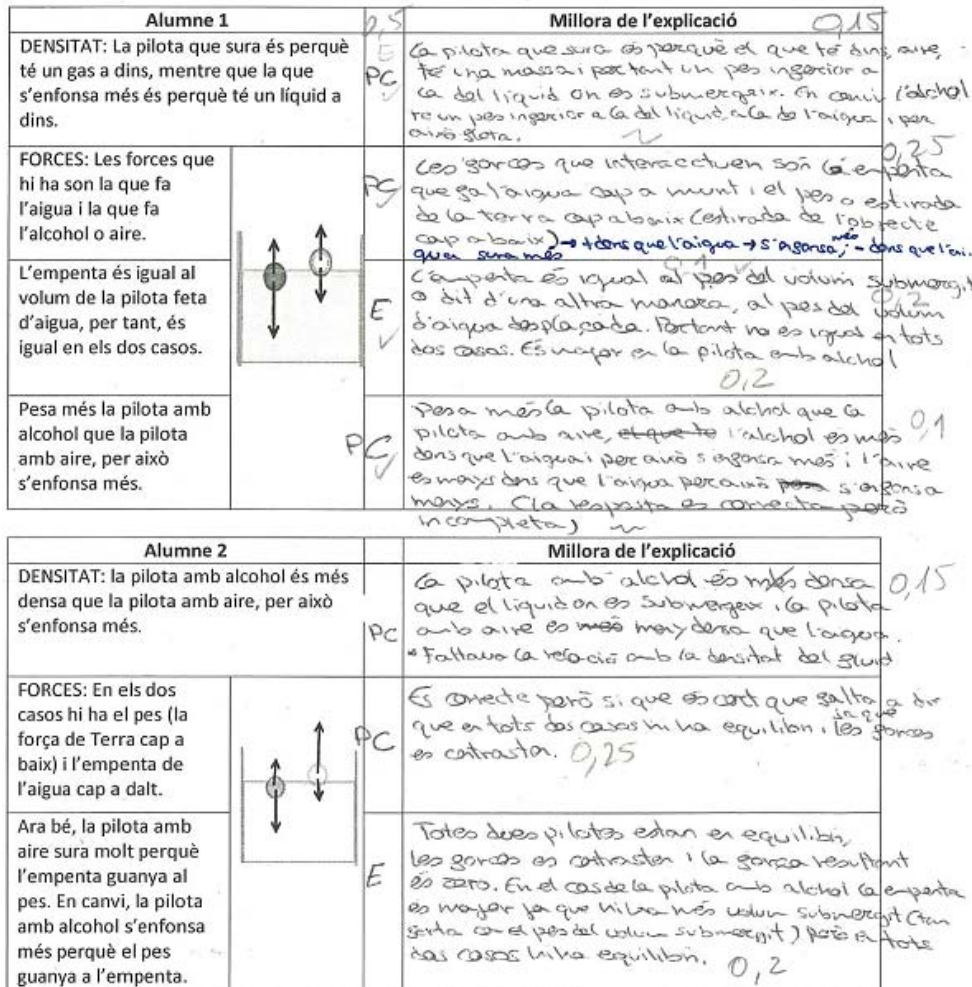 Alumne 1
0,5
Millora de l'explicació
0,15
DENSITAT: La pilota que sura és perquè
té un gas a dins, mentre que la que
s'enfonsa més és perquè té un líquid a
dins.
E
PC
La pilota que sura és perquè el que té dins, aire,
té una massa i per tant un pes inferior a
la del líquid on es submergeix. En canvi l'alchol
te un pes inferior a la del líquid, a la de l'aigua, per
això flota.
FORCES: Les forces que
hi ha son la que fa
l'aigua i la que fa
l'alcohol o aire.
PC
0,25
Les forces que interactuen són la empenta
que fa l'aigua cap a munt i el pes o estirada
de la terra cap a baix (estirada de l'objecte
cap a baix) → + dens que l'aigua → s'afonsa més, - dens que l'ai.
sura més
0,1
L'empenta és igual al
volum de la pilota feta
d'aigua, per tant, és
igual en els dos casos.
E
L'empenta és igual al pes del volum submergit
o dit d'una altra manera, al pes del volum
0,2
d'aigua desplaçada. Per tant no es igual en tots
dos casos. És major en la pilota amb alchol
0,2
Pesa més la pilota amb
alcohol que la pilota
amb aire, per això
s'enfonsa més.
PC
Pesa més la pilota amb alchol que la
pilota amb aire, el que te l'alchol es més
0,1
dens que l'aigua i per això s'enfonsa més i l'aire
es menys dens que l'aigua per això pesa s'enfonsa
menys. (la resposta es correcta però
incompleta)
Alumne 2
Millora de l'explicació
DENSITAT: la pilota amb alcohol és més
densa que la pilota amb aire, per això
s'enfonsa més.
PC
La pilota amb alchol és més densa
0,15
que el líquid on es submergeix i la pilota
amb aire es meś menys densa que l'aigua.
* Faltava la relació amb la densitat del fluid
FORCES: En els dos
casos hi ha el pes (la
força de Terra cap a
baix) i l'empenta de
l'aigua cap a dalt.
PC
Es correcte però si que és cert que falta a dir
que en tots dos casos hi ha equilibri, ja que les forces
es contrasten. 0,25
Ara bé, la pilota amb
aire sura molt perquè
l'empenta guanya al
pes. En canvi, la pilota
amb alcohol s'enfonsa
més perquè el pes
guanya a l'empenta.
E
Totes dues pilotes estan en equilibri,
les forces es contrasten i la força resultant
és zero. En el cas de la pilota amb alchol la empenta
es major ja que hi ha més volum submergit
con el pes del volum submergit) però en tots
dos casos hi ha equilibri. 0,2